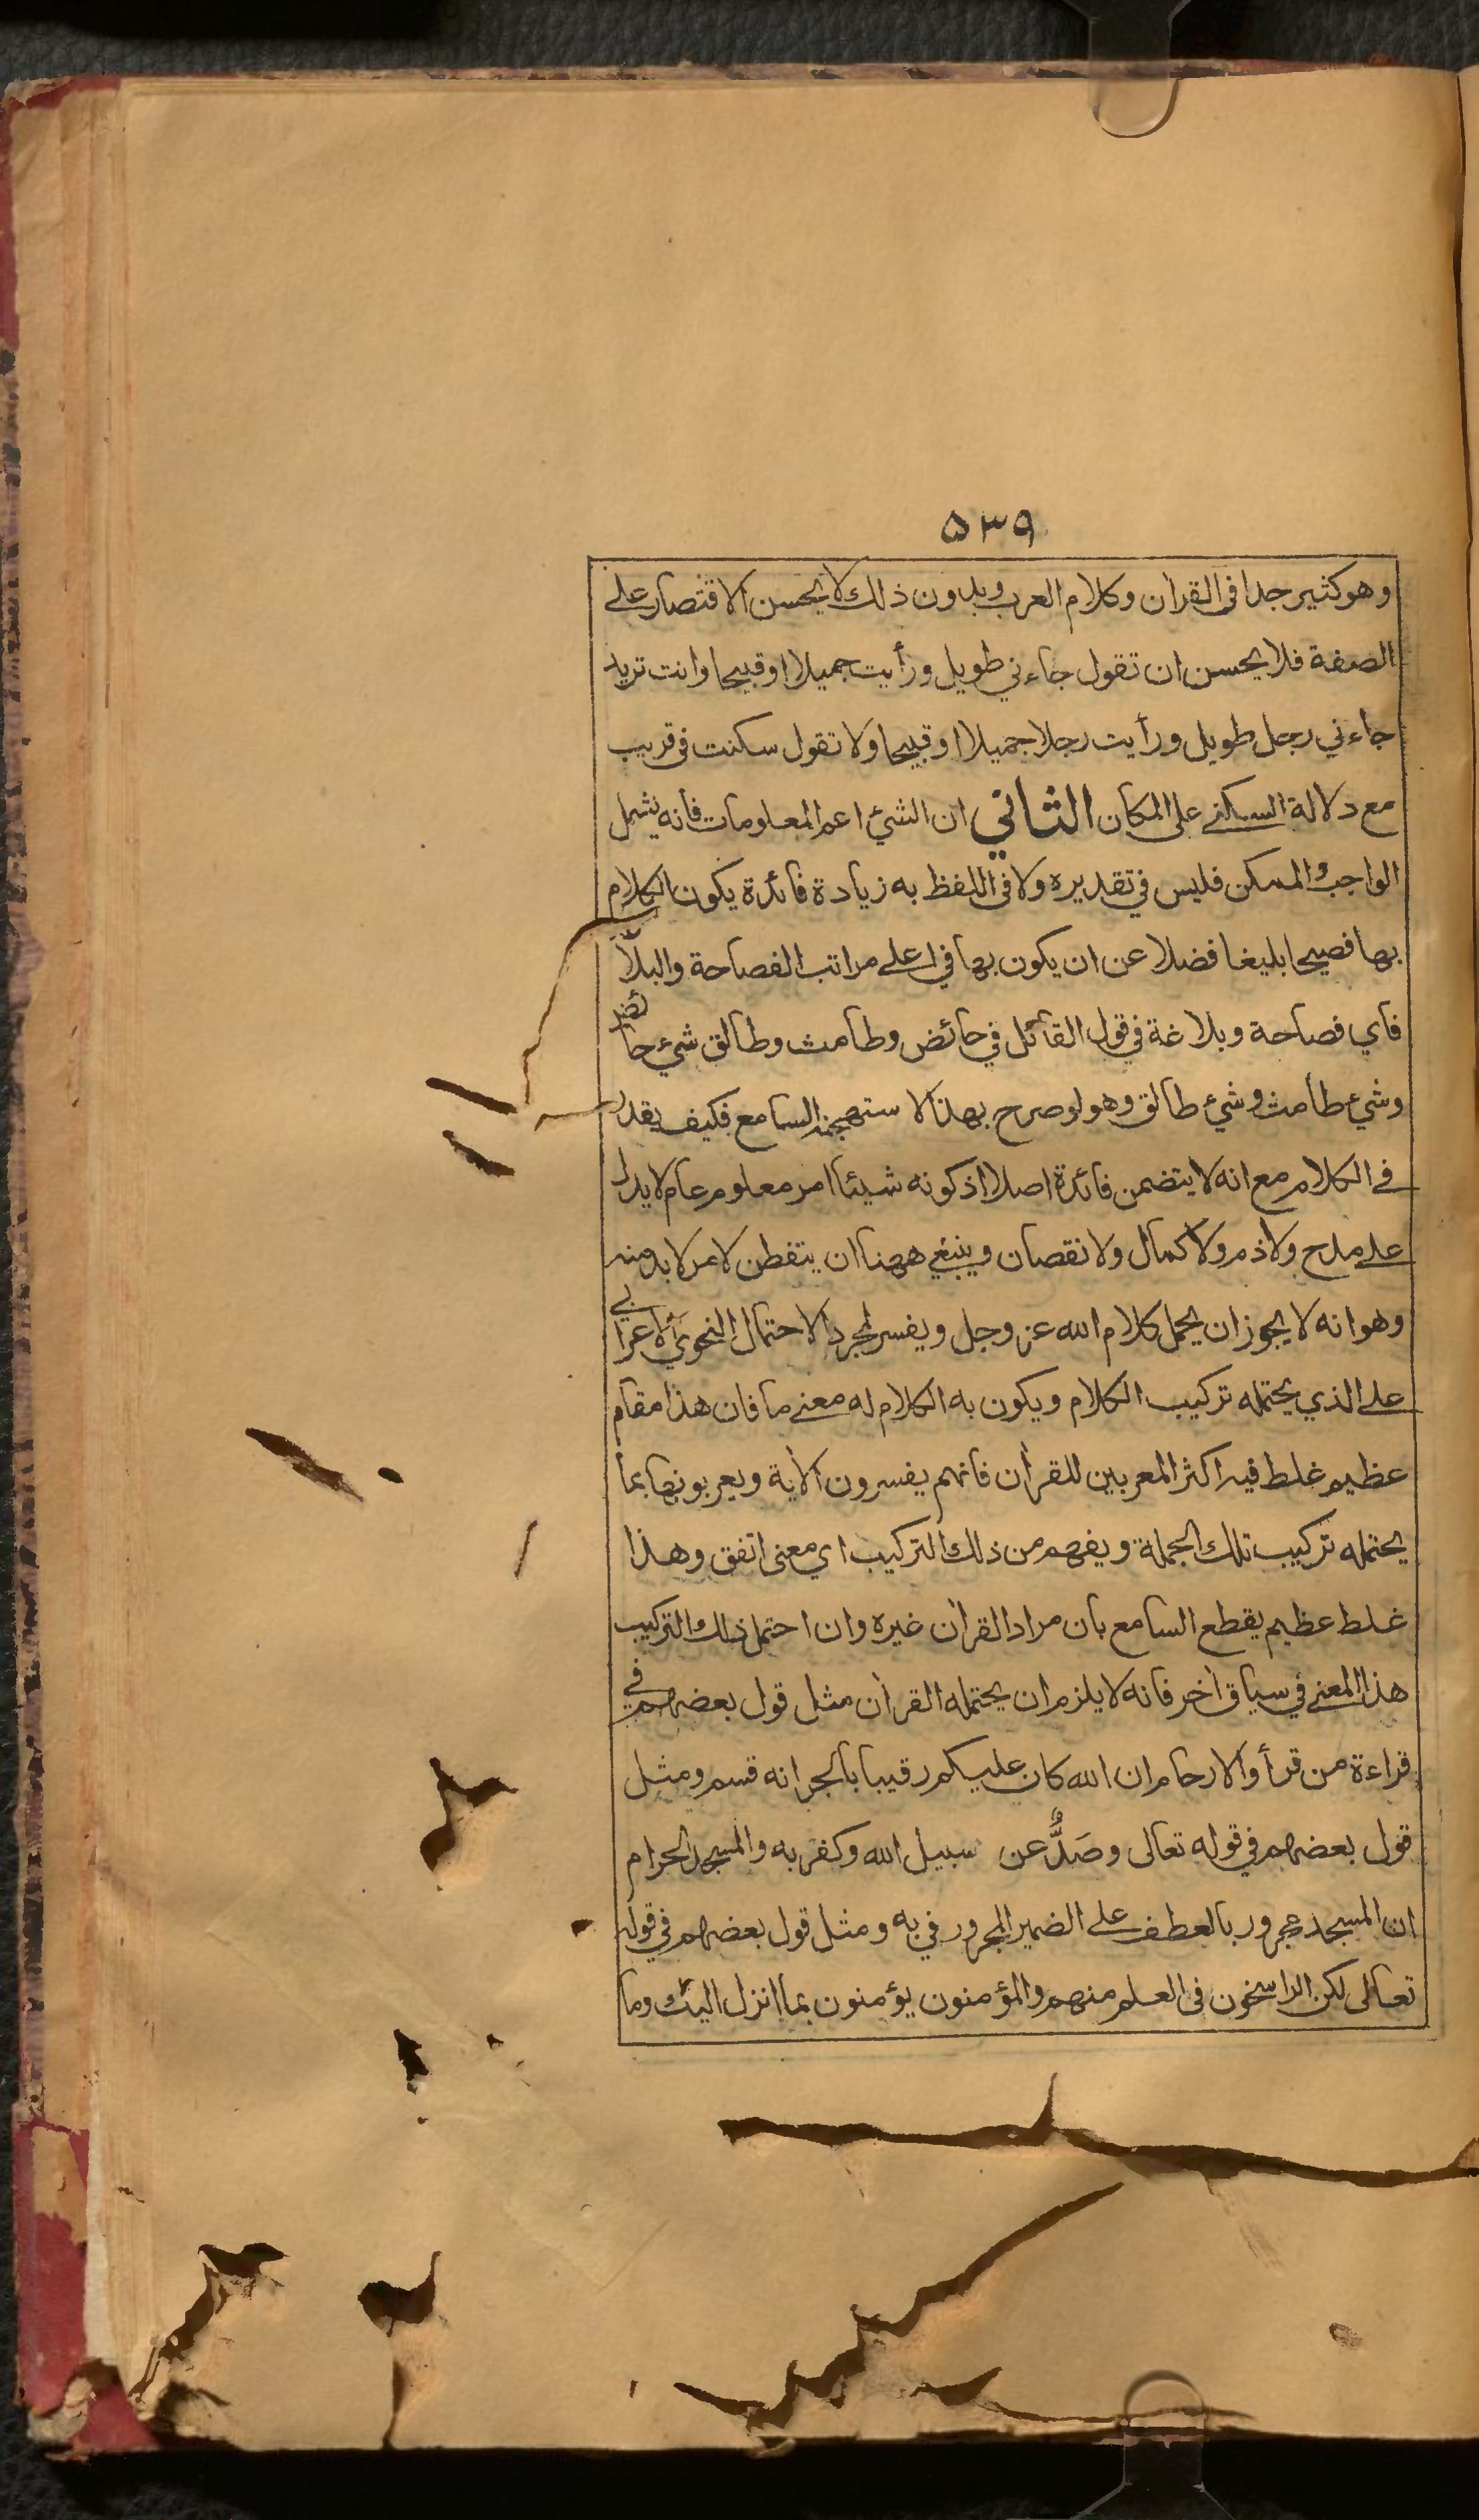 ۵۳۹
وهو كثير جدا فى القرآن وكلام العرب وبدون ذلك لا يحسن الاقتصار على
الصفة فلا يحسن ان تقول جاءني طويل ورأيت جميلا او قبيحا وانت تريد
جاءني رجل طويل ورأيت رجلا جميلا او قبيحا ولا تقول سكنت في قريب
مع دلالة السكنى على المكان الثاني ان الشيء اعم المعلومات فانه يشمل
الواجب والممكن فليس في تقديره ولا في اللفظ به زيادة فائدة يكون الكلام
بها فصيحا بليغا فضلا عن ان يكون بها في اعلى مراتب الفصاحة والبلا
فاي فصاحة وبلاغة في قول القائل في حائض وطامث وطالق شيء حائض
وشيء طامث وشيء طالق وهو لو صرح بهذا لاستهجنه السامع فكيف يقدر
في الكلام مع انه لا يتضمن فائدة اصلا اذ كونه شيئا امر معلوم عام لا يدل
على مدح ولا ذم ولا كمال ولا نقصان وينبغي ههنا ان يتفطن لامر لا بد منه
وهو انه لا يجوز ان يحمل كلام الله عز وجل ويفسر بمجرد الاحتمال النحوي الاعرابي
على الذي يحتمله تركيب الكلام ويكون به الكلام له معنى ما فان هذا مقام
عظيم غلط فيه اكثر المعربين للقرآن فانهم يفسرون الآية ويعربونها بما
يحتمله تركيب تلك الجملة ويفهم من ذلك التركيب اي معنى اتفق وهذا
غلط عظيم يقطع السامع بان مراد القرآن غيره وان احتمل ذلك التركيب
هذا المعنى في سياق آخر فانه لا يلزم ان يحتمله القرآن مثل قول بعضهم في
قراءة من قرأ والارحام ان الله كان عليكم رقيبا بالجر انه قسم ومثل
قول بعضهم في قوله تعالى وصَدٌّ عن سبيل الله وكفر به والمسجد الحرام
ان المسجد مجرور بالعطف على الضمير المجرور في به ومثل قول بعضهم في قوله
تعالى لكن الراسخون فى العلم منهم والمؤمنون يؤمنون بما انزل اليك وما